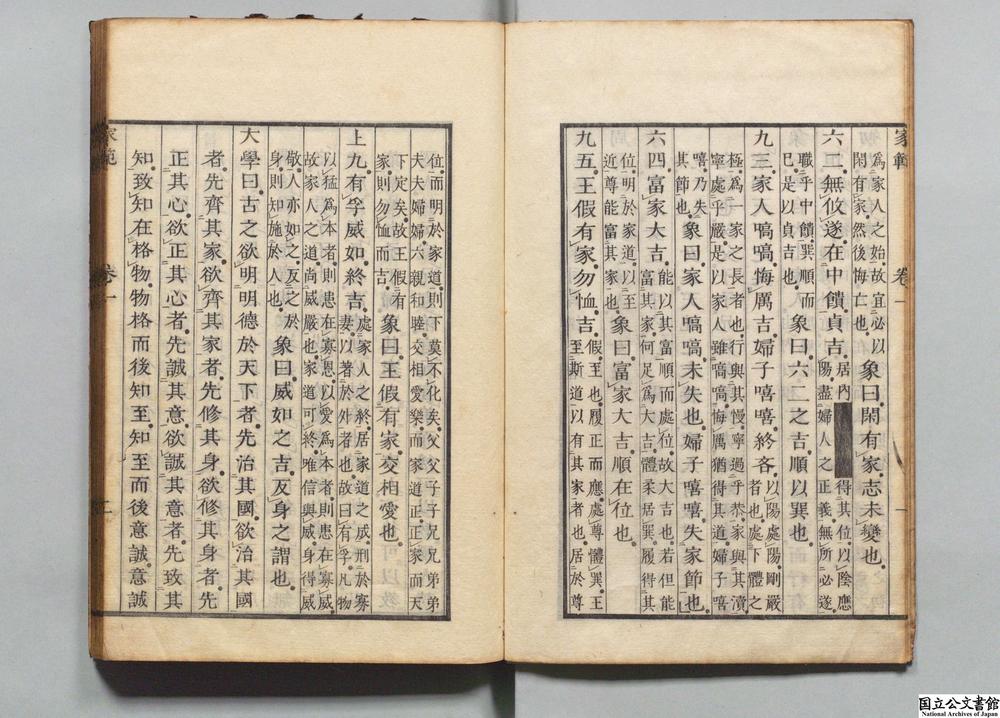 家範
卷一
爲家人之始故宜必以
閑有家然後悔亡也
象曰閑有家志未變也
六二無攸遂在中饋貞吉
居內得其位以陰應
陽盡婦人之正義無所必遂
職乎中饋巽順而
已是以貞吉也
象曰六二之吉順以巽也
九三家人嗃嗃悔厲吉婦子嘻嘻終吝
以陽處陽剛嚴
者也處下體之
極爲一家之長者也行與其慢寧過乎恭家與其瀆
寧處乎嚴是以家人雖嗃嗃悔厲猶得其道婦子嘻
嘻乃失
其節也
象曰家人嗃嗃未失也婦子嘻嘻失家節也
六四富家大吉
能以其富順而處位故大吉也若但能
富其家何足爲大吉體柔居巽履得其
位明於家道以至
近尊能富其家也
象曰富家大吉順在位也
九五王假有家勿恤吉
假至也履正而應處尊體巽王
至斯道以有其家者也居於尊
位而明於家道則下莫不化矣父父子子兄兄弟弟
夫夫婦婦六親和睦交相愛樂而家道正正家而天
下定矣故王假有
家則勿恤而吉
象曰王假有家交相愛也
上九有孚威如終吉
處家人之終居家道之成刑於寡
妻以著於外者也故曰有孚凡物
以猛爲本者則患在寡恩以愛爲本者則患在寡威
故家人之道尚威嚴也家道可終唯信與威身得威
敬人亦如之反之於
身則知施於人也
象曰威如之吉反身之謂也
大學曰古之欲明明德於天下者先治其國欲治其國
者先齊其家欲齊其家者先修其身欲修其身者先
正其心欲正其心者先誠其意欲誠其意者先致其
知致知在格物物格而後知至知至而後意誠意誠
家範
卷一
国立公文書館
National Archives of Japan